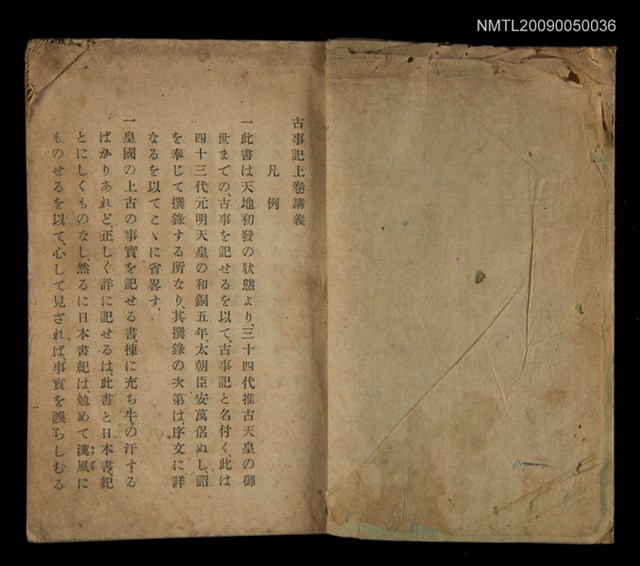 NMTL20090050036
古事記上卷講義
凡例
一此書は天地初發の狀態より、三十四代推古天皇の御
世までの、古事を記せるを以て、古事記と名付く、此は
四十三代元明天皇の和銅五年、太朝臣安萬侶ぬし、詔
を奉じて撰錄する所なり、其撰錄の次第は、序文に詳
なるを以てこゝに省畧す、
一皇國の上古の事實を記せる書、棟に充ち牛の汗する
ばかりあれど、正しく詳に記せるは、此書と日本書紀
とにしくものなし、然るに日本書紀は、勉めて漢風に
ものせるを以て、心して見されば、事實を誤らしむる